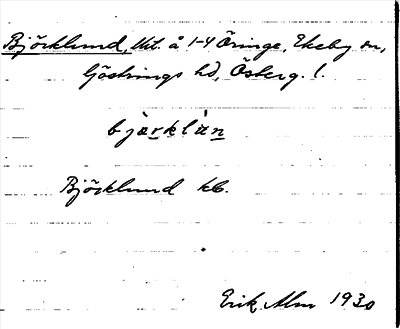 Björklund, Utl. å 1-4 Öringe, Ekeby sn,
Göstrings hd, Österg. l.
bjärklún
Björklund kb.
Erik Alm 1930